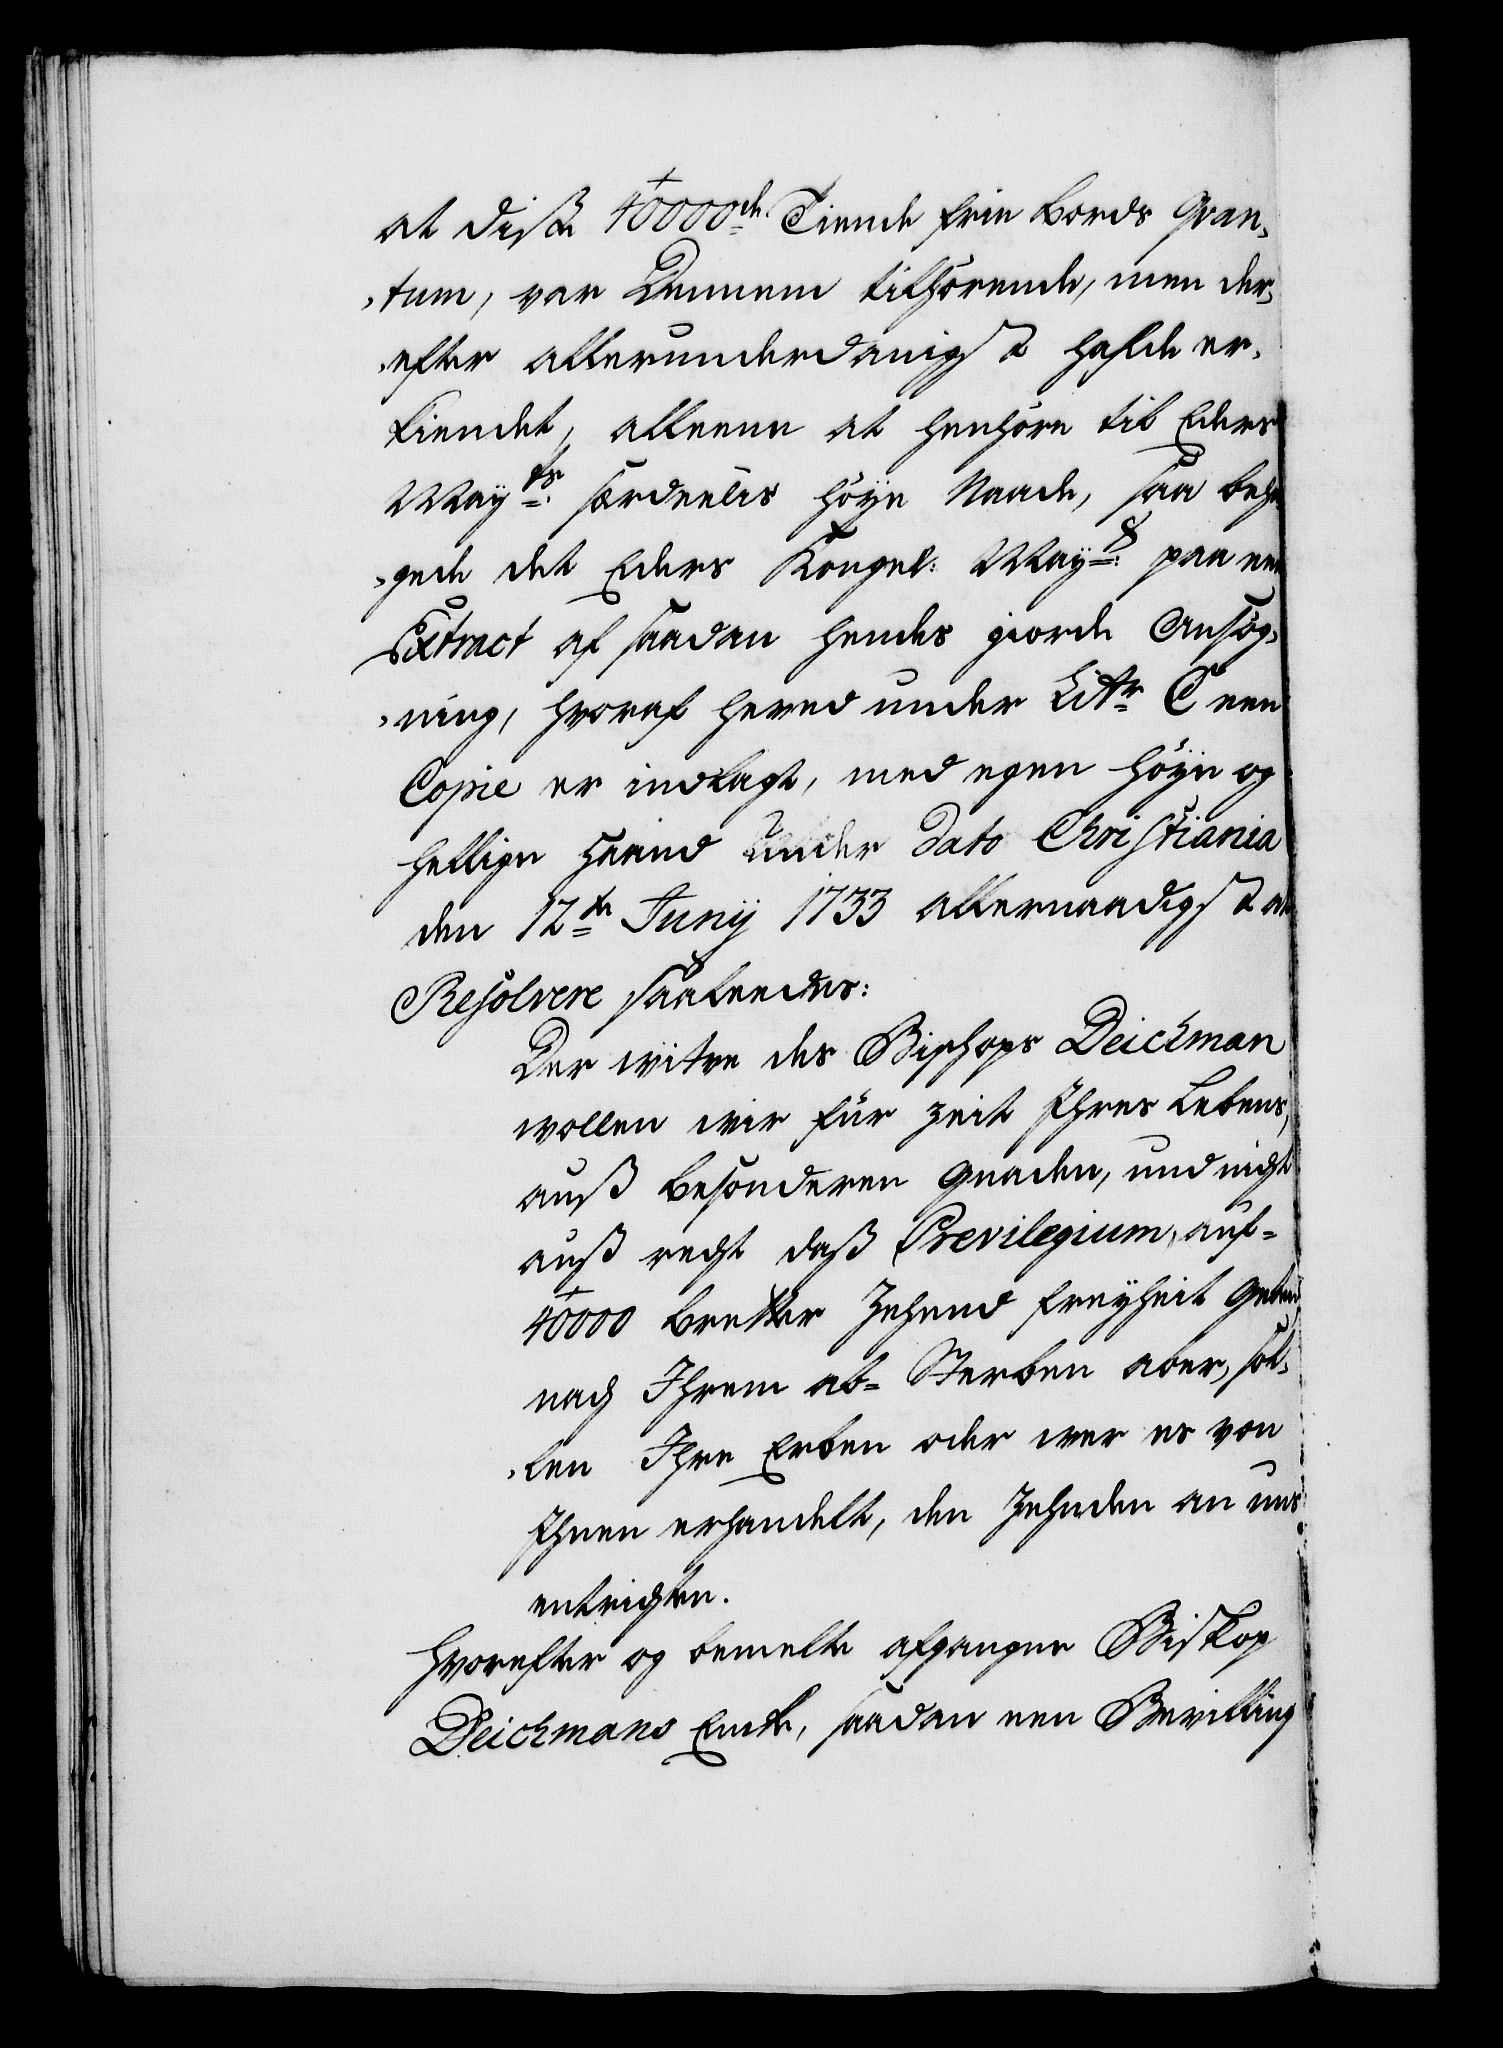 at diße 40000de Tiende frie Bords Qvan-
-tum, var Dennem tilhörende, men der-
-efter allerunderdanigst hafde er-
kiendet, alleene at henhöre til Eders
Mayts: særdeelis höye Naade, saa beha
-gede det Eders Kongel: Mayt: paa een
Extract af saadan hendes giorde Ansög-
-ning, hvoraf herved under Litr C een
Copie er indlagt, med egen höye og
hellige Haand under Dato Christiania
den 12te Junij 1733 allernaadigst at
Resolvere saaleedes:
Der witve des Bischops Deichman
wollen wir für Zeit Ihres Lebens,
auß besonderen Gnaden, und nicht
auß recht daß Previlegium, auf-
40000 Bretter Zehend freyheit geben
nach Ihrem ab-Sterben aber, sol-
-len Ihre Erben oder wer es von
Ihnen erhandelt, den Zehnden an uns
entrichten.
Hvorefter og bemelte afgangne Biskop
Deichmans Encke, saadan een Bevilling